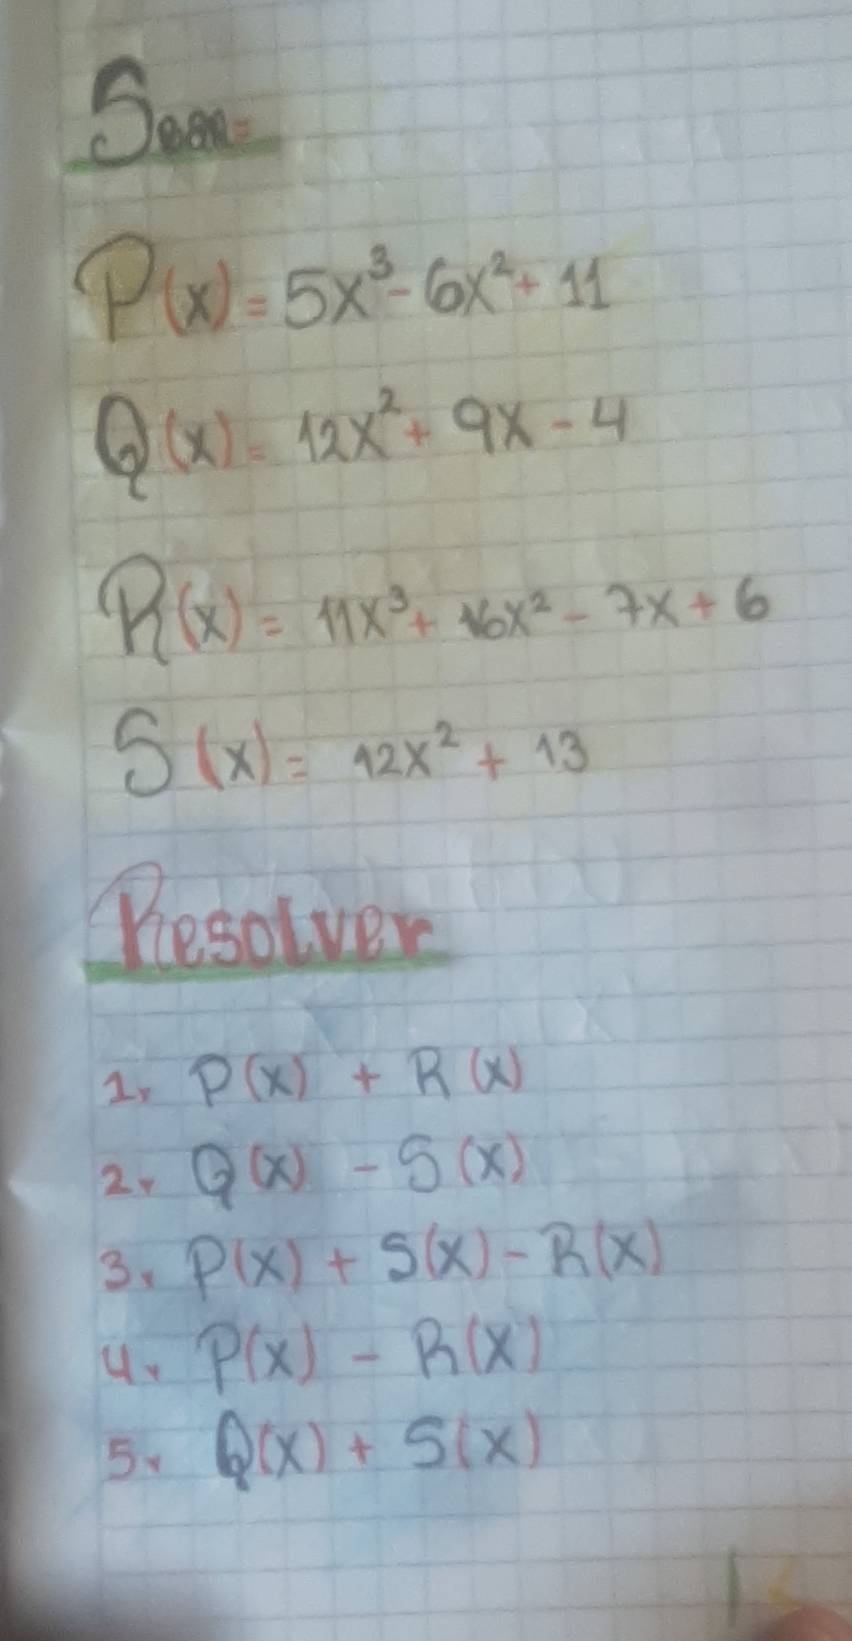 Sean=
P(x) = 5x³ - 6x² + 11
Q(x) = 12x² + 9x - 4
R(x) = 11x³ + 16x² - 7x + 6
S(x) = 12x² + 13
Resolver
1. P(x) + R(x)
2. Q(x) - S(x)
3. P(x) + S(x) - R(x)
4. P(x) - R(x)
5. Q(x) + S(x)